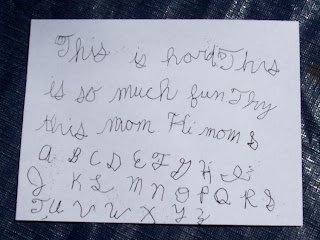 This is hard This
is so much fun Try
this mom. Hi mom S
a B C D E F G H I
J K L M N O P Q R S
T U V W X Y Z